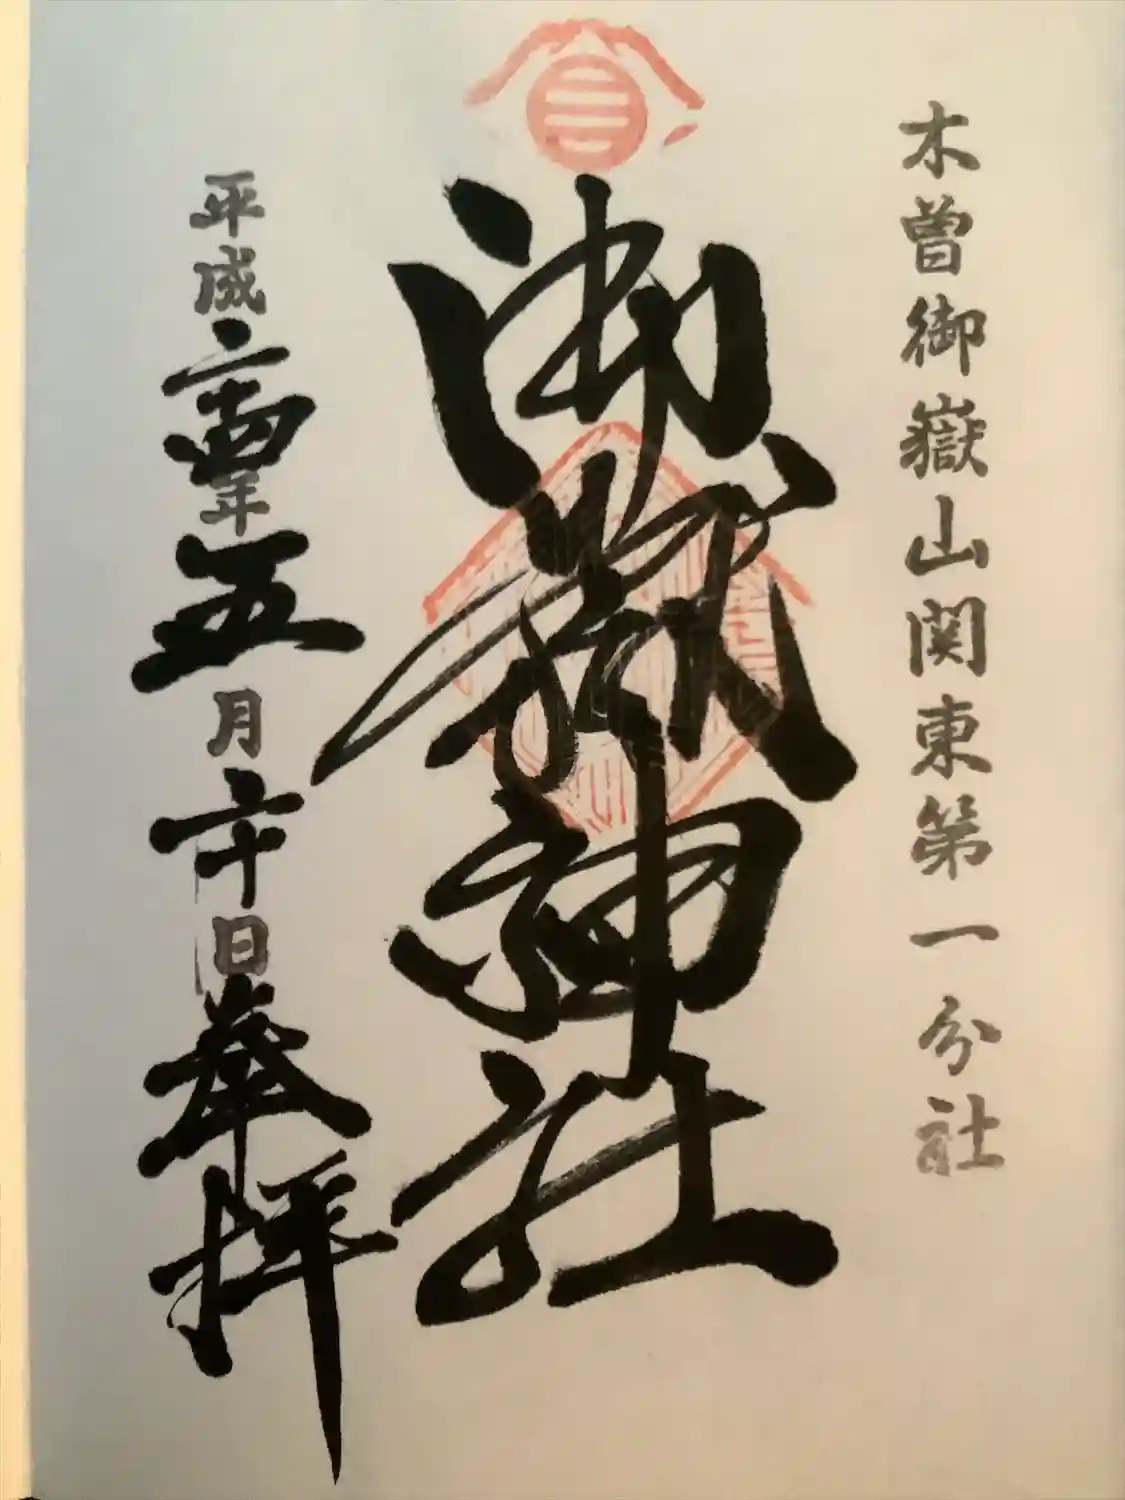 木曽御嶽山関東第一分社
御嶽神社
平成二十四年五月二十日奉拝